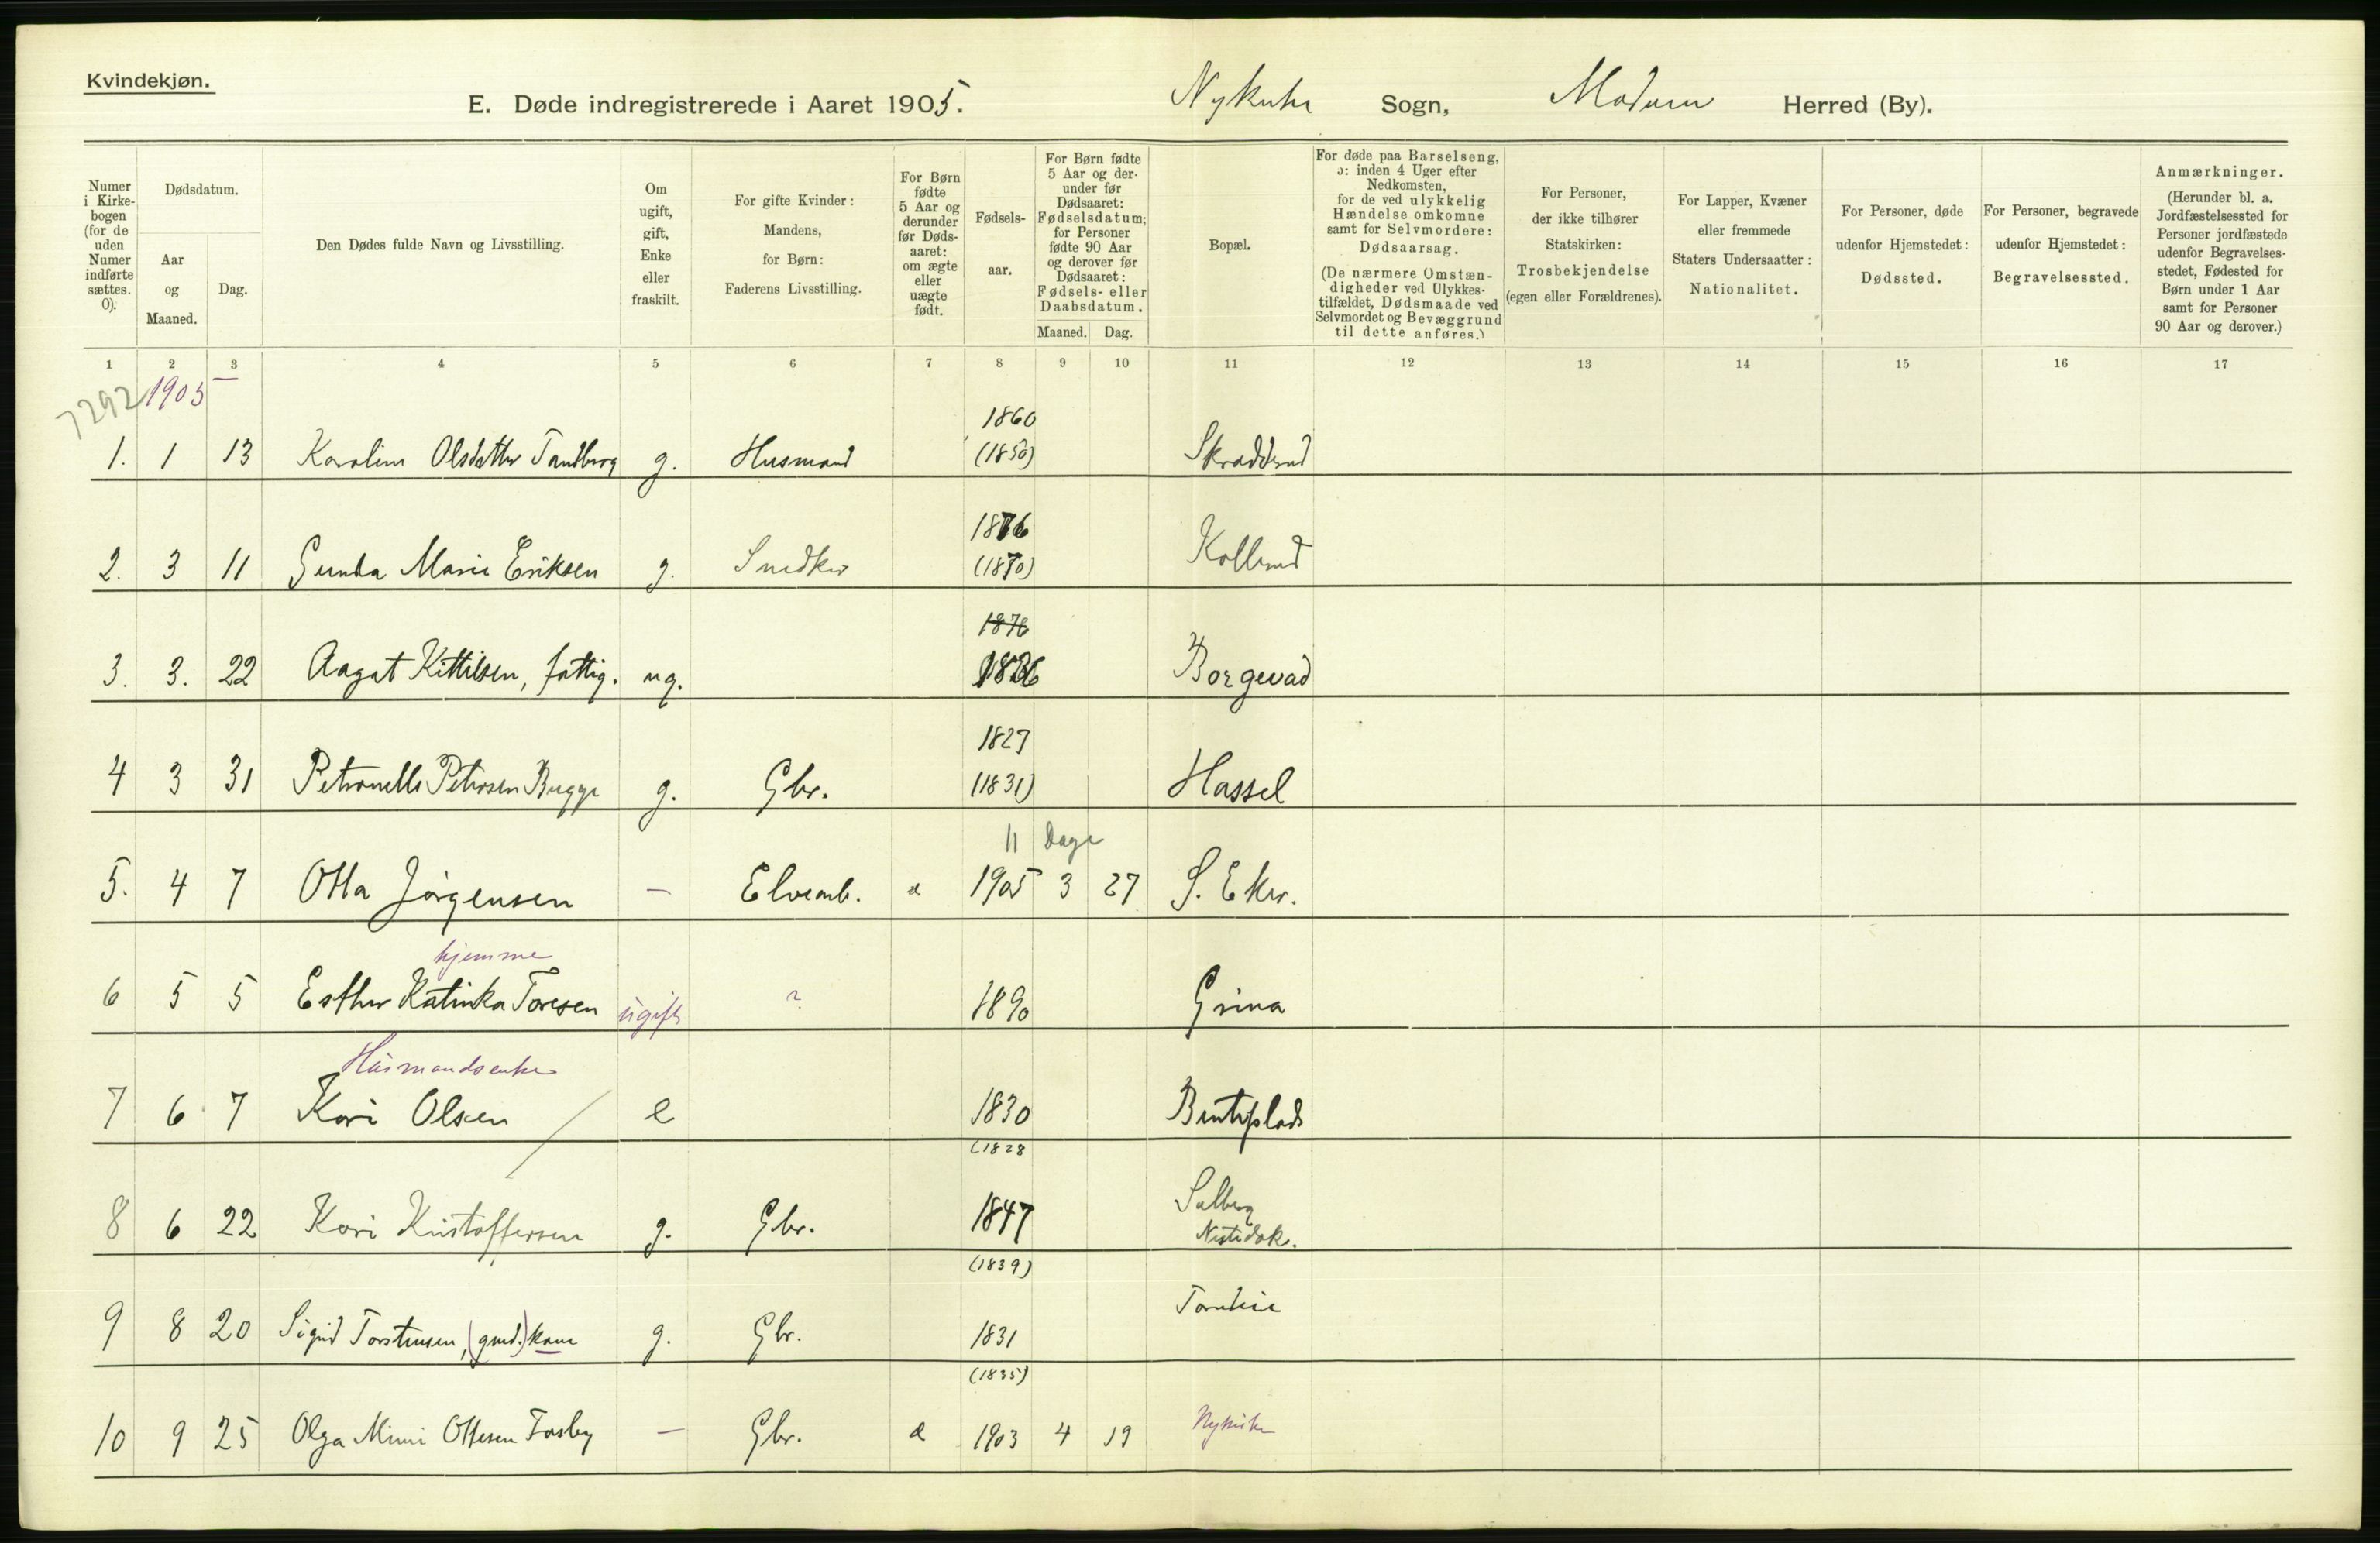 Kvindekjøn.
E. Døde indregistrerede i Aaret 1905. Nykirke Sogn, Modum Herred (By).
Numer i Kirkebogen (for de uden Numer indførte sættes. 0).
Dødsdatum.
Aar og Maaned.
Dag.
Den Dødes fulde Navn og Livsstilling.
Om ugift, gift, Enke eller fraskilt.
For gifte Kvinder: Mandens, for Børn: Faderens Livsstilling.
For Børn fødte 5 Aar og derunder før Dødsaaret: om ægte eller uægte født.
Fødselsaar.
For Børn fødte 5 Aar og derunder før Dødsaaret: Fødselsdatum; for Personer fødte 90 Aar og derover før Dødsaaret: Fødsels- eller Daabsdatum.
Maaned. Dag.
Bopæl.
For døde paa Barselseng, ɔ: inden 4 Uger efter Nedkomsten, for de ved ulykkelig Hændelse omkomne samt for Selvmordere: Dødsaarsag.
(De nærmere Omstændigheder ved Ulykkestilfældet, Dødsmaade ved Selvmordet og Bevæggrund til dette anføres.)
For Personer, der ikke tilhører Statskirken: Trosbekjendelse (egen eller Forældrenes).
For Lapper, Kvæner eller fremmede Staters Undersaatter: Nationalitet.
For Personer, døde udenfor Hjemstedet: Dødssted.
For Personer, begravede udenfor Hjemstedet: Begravelsessted.
Anmærkninger.
(Herunder bl. a. Jordfæstelsessted for Personer jordfæstede udenfor Begravelsesstedet, Fødested for Børn under 1 Aar samt for Personer 90 Aar og derover.)
1 2 3 4 5 6 7 8 9 10 11 12 13 14 15 16 17
7292 1905
1860
1. 1 13 Karoline Olsdatter Tandberg g. Husmand (1850) Skraddrud
1876
2. 3 11 Gunda Marie Eriksen g. Snedker (1870) Kollerud
1876
3. 3. 22 Aagat Kittilsen, fattig. ug. 1826 Borgevad
1827
4 3 31 Petronelle Petersen Bugge g. Gbr. (1831) Hassel
11 Dage
5. 4 7 Otta Jörgensen — Elvearb. æ 1905 3 27 S. Eker.
hjemme
6 5 5 Esther Katinka Toresen ugift ? 1890 Grina
Husmandsenke
7 6 7 Kari Olsen e 1830
(1828
8 6 22 Kari Kristoffersen g. Gbr. 1847
(1839)
9 8 20 Sigrid Torstensen, (gmd.) kone g. Gbr. 1831
(1835)
10 9 25 Olga Mimi Ottesen Forsby — Gbr. æ 1903 4 19 Nykirke